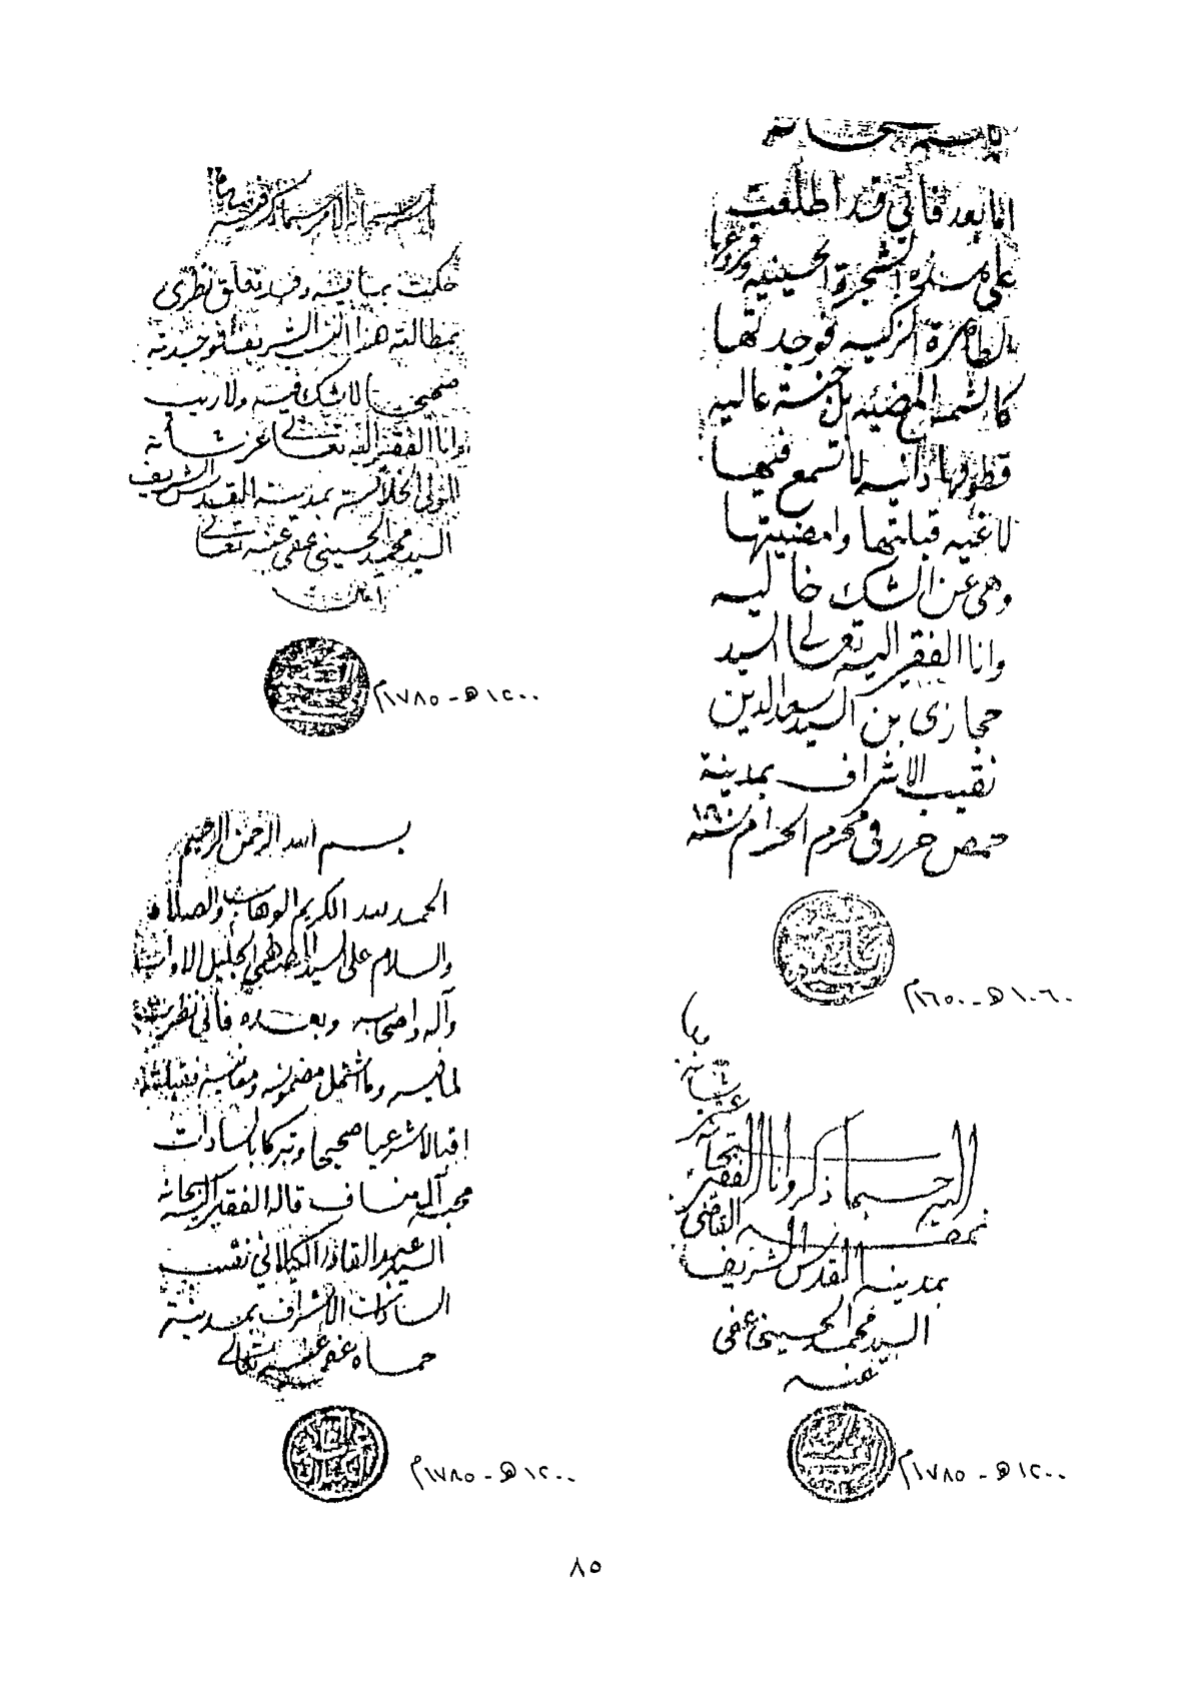 باسمه سبحانه
اما بعد فاني قد اطلعت
على هذه الشجرة الحسينية وفروعها
الطاهرة الزكيه فوجدتها
كالشمس المضيئه بل جنة عاليه
قطوفها دانيه لا تسمع فيها
لاغيه قبلتها وامضيتها
وهي عن الشك خاليه
وانا الفقير اليه تعالى السيد
حجازي بن السيد سعد الدين
نقيب الاشراف بمدينة
حمص حرر في محرم الحرام سنة ١٠٦٠
١٠٦٠ هـ - ١٦٥٠م
حكمت بما فيه وقد تعلق نظري
بمطالعة هذا النسب الشريف فوجدته
صحيحا لا شك فيه ولا ريب
وانا الفقير اليه تعالى عز شأنه
المولى الخلافة بمدينة القدس الشريف
السيد محمد الحسيني عفي عنه تعالى
١٢٠٠ هـ - ١٧٨٥م
وانا الفقير
القاضي
بمدينة القدس الشريف
السيد محمد الحسيني عفي
عنه
١٢٠٠ هـ - ١٧٨٥م
بسم الله الرحمن الرحيم
الحمد لله الكريم الوهاب والصلاة
والسلام على السيد الجليل الاواب
وآله واصحابه وبعده فاني نظرت
لما فيه وما اشتمل مضمونه ومعانيه فقبلته
اقبالا شرعيا صحيحا وتبركا بالسادات
محب آل مناف قاله الفقير اليه سبحانه
السيد عبد القادر الكيلاني نقيب
السادات الاشراف بمدينة
حماه عفي عنه تعالى
١٢٠٠ هـ - ١٧٨٥م
٨٥